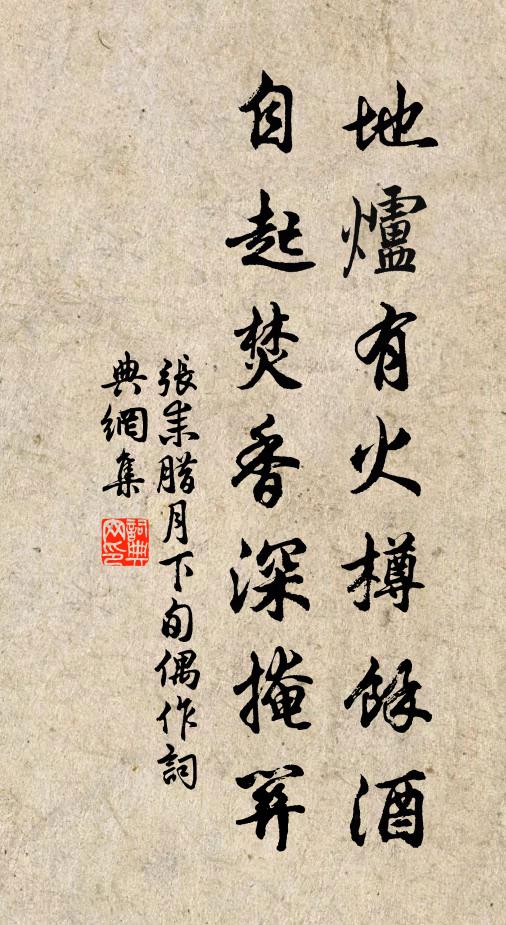 地爐有火樽餘酒
自起焚香深掩關
張耒腊月下旬偶作詞
典網集
詞典
网印